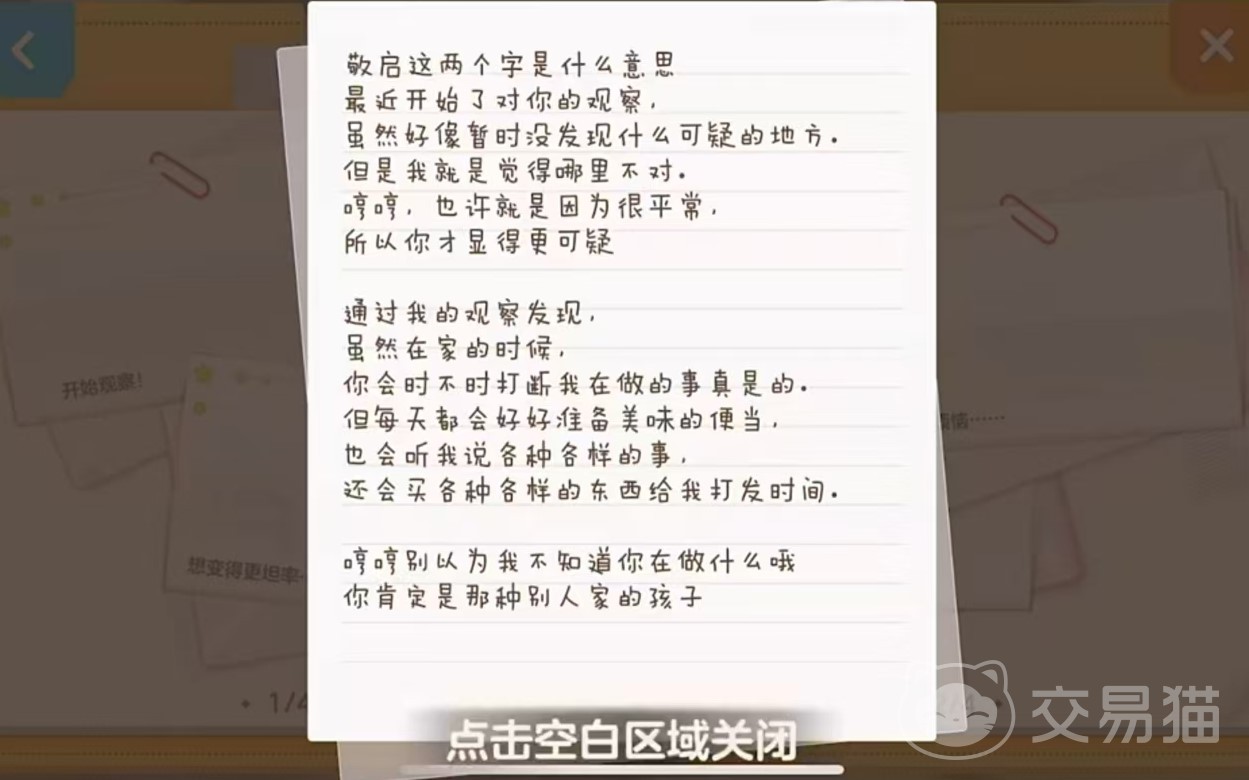 敬启这两个字是什么意思
最近开始了对你的观察，
虽然好像暂时没发现什么可疑的地方。
但是我就是觉得哪里不对。
哼哼，也许就是因为很平常，
所以你才显得更可疑
通过我的观察发现，
虽然在家的时候，
你会时不时打断我在做的事真是的。
但每天都会好好准备美味的便当，
也会听我说各种各样的事，
还会买各种各样的东西给我打发时间。
哼哼别以为我不知道你在做什么哦
你肯定是那种别人家的孩子
开始观察！
想变得更坦率…
恼……
1/4
点击空白区域关闭
交易猫